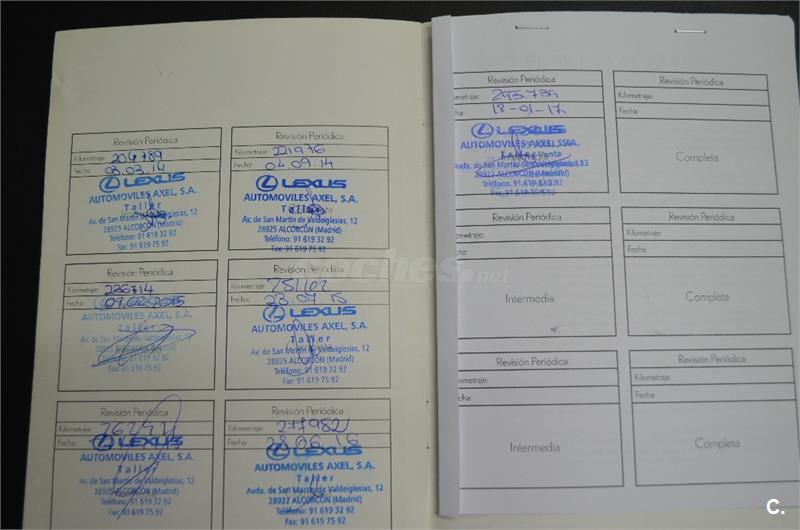 Revisión Periódica
Kilometraje: 204789
Fecha: 03.03.14
LEXUS
AUTOMOVILES AXEL, S.A.
Taller
Av. de San Martín de Valdeiglesias, 12
28925 ALCORCÓN (Madrid)
Teléfono: 91 619 32 92
Fax: 91 619 75 92
Revisión Periódica
Kilometraje: 221976
Fecha: 04.09.14
LEXUS
AUTOMOVILES AXEL, S.A.
Taller
Av. de San Martín de Valdeiglesias, 12
28925 ALCORCÓN (Madrid)
Teléfono: 91 619 32 92
Fax: 91 619 75 92
Revisión Periódica
Kilometraje: 236714
Fecha:
AUTOMOVILES AXEL, S.A.
Taller
Av. de San Martín de Valdeiglesias, 12
28925 (Madrid)
Teléfono: 91 619 32 92
Fax: 91 619 75 92
Revisión Periódica
Kilometraje: 251102
Fecha: 23.07.15
LEXUS
AUTOMOVILES AXEL, S.A.
Taller
Av. de San Martín de Valdeiglesias, 12
28925 ALCORCÓN (Madrid)
Teléfono: 91 619 32 92
Fax: 91 619 75 92
Revisión Periódica
Kilometraje:
Fecha:
LEXUS
AUTOMOVILES AXEL, S.A.
Taller
Av. de San Martín de Valdeiglesias, 12
28925 ALCORCÓN (Madrid)
Teléfono: 91 619 32 92
Fax: 91 619 75 92
Revisión Periódica
Kilometraje: 277982
Fecha: 28.06.16
LEXUS
AUTOMOVILES AXEL, S.A.
Taller
Avda. de San Martín de Valdeiglesias, 12
28922 ALCORCÓN (Madrid)
Teléfono: 91 619 32 92
Fax: 91 619 75 92
Revisión Periódica
ometraje: 295739
Fecha: 18-01-17
LEXUS
AUTOMOVILES AXEL, S.A.
Taller
Avda. de San Martín de Valdeiglesias, 12
28922 ALCORCÓN (Madrid)
Teléfono: 91 619 32 92
Fax: 91 619 75 92
Revisión Periódica
Kilometraje:
Fecha:
Completa
Revisión Periódica
ometraje:
Fecha:
Intermedia
Revisión Periódica
Kilometraje:
Fecha:
Completa
Revisión Periódica
Kilometraje:
Fecha:
Intermedia
Revisión Periódica
Kilometraje:
Fecha:
Completa
coches.net
C.